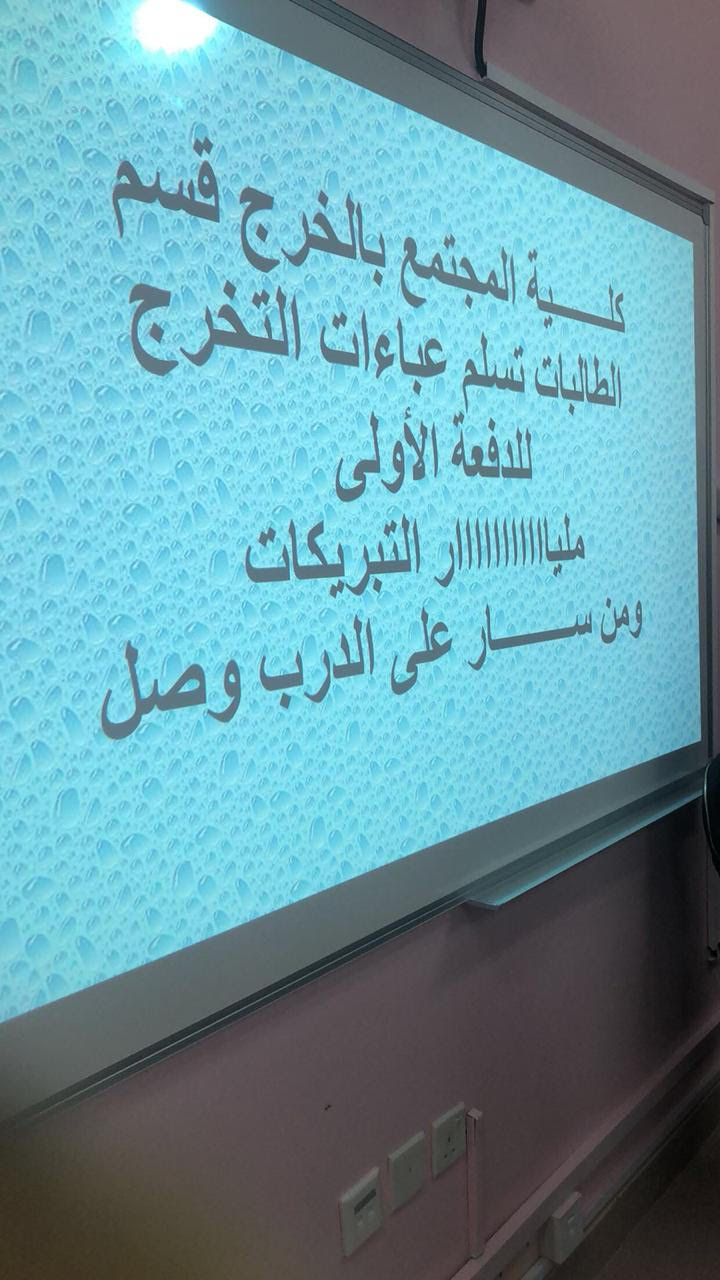 كلـــــية المجتمع بالخرج قسم
الطالبات تسلم عباءات التخرج
للدفعة الأولى
مليااااااااااار التبريكات
ومن ســـــار على الدرب وصل